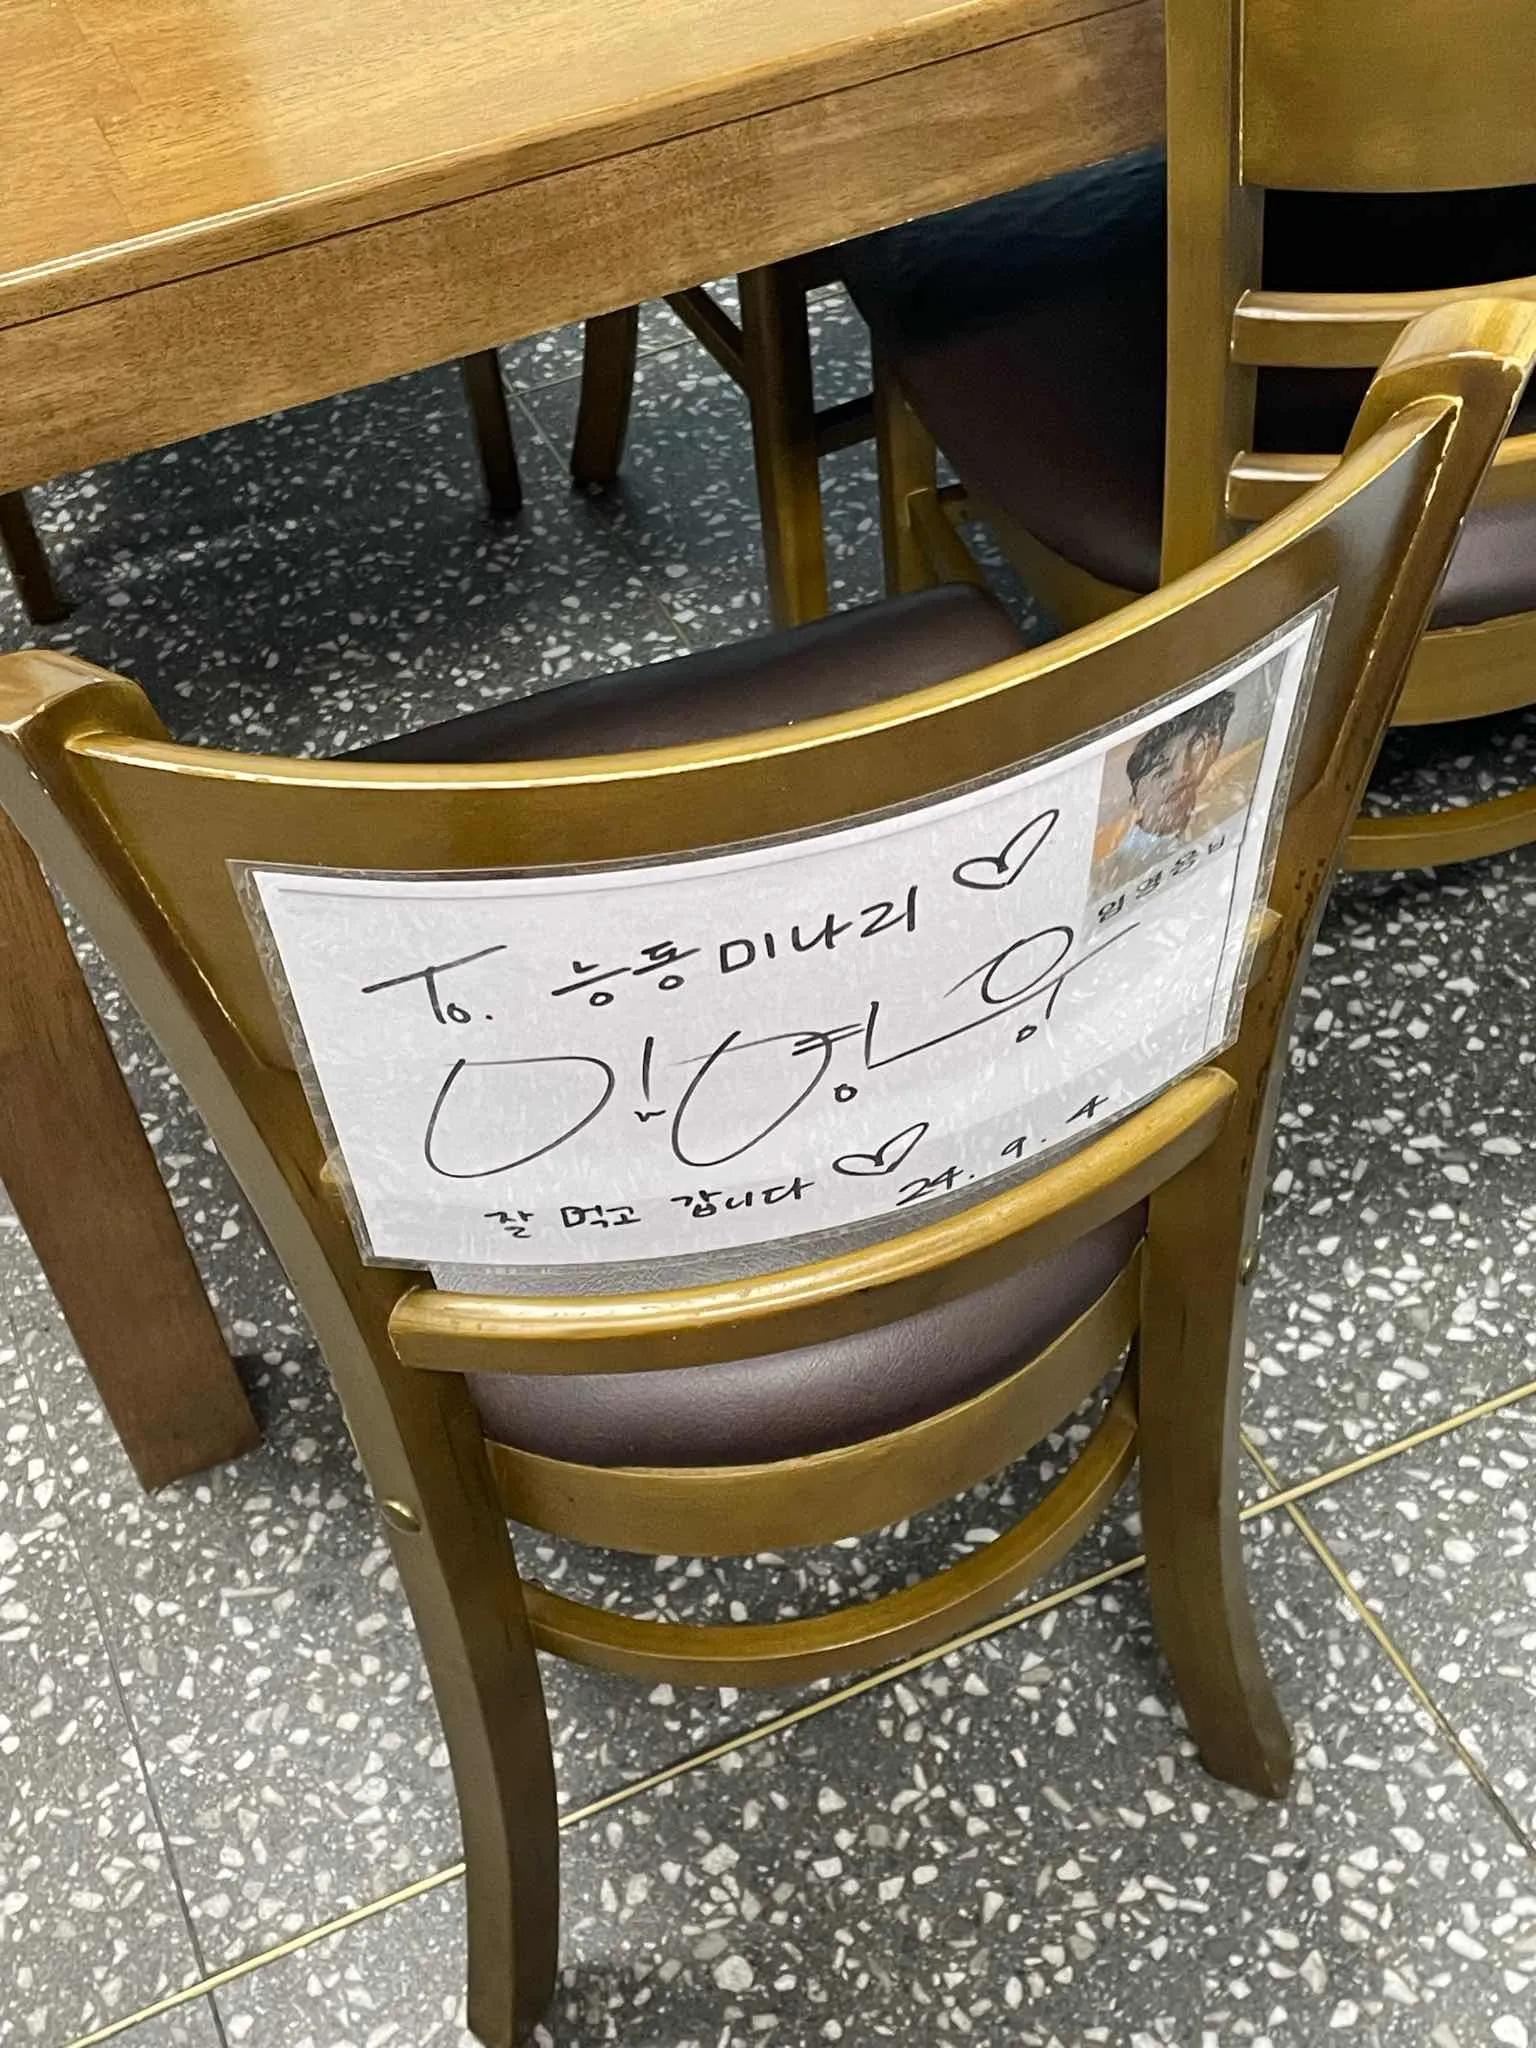 To. 능동미나리
임영웅
잘 먹고 갑니다
24. 9. 4
임영웅님